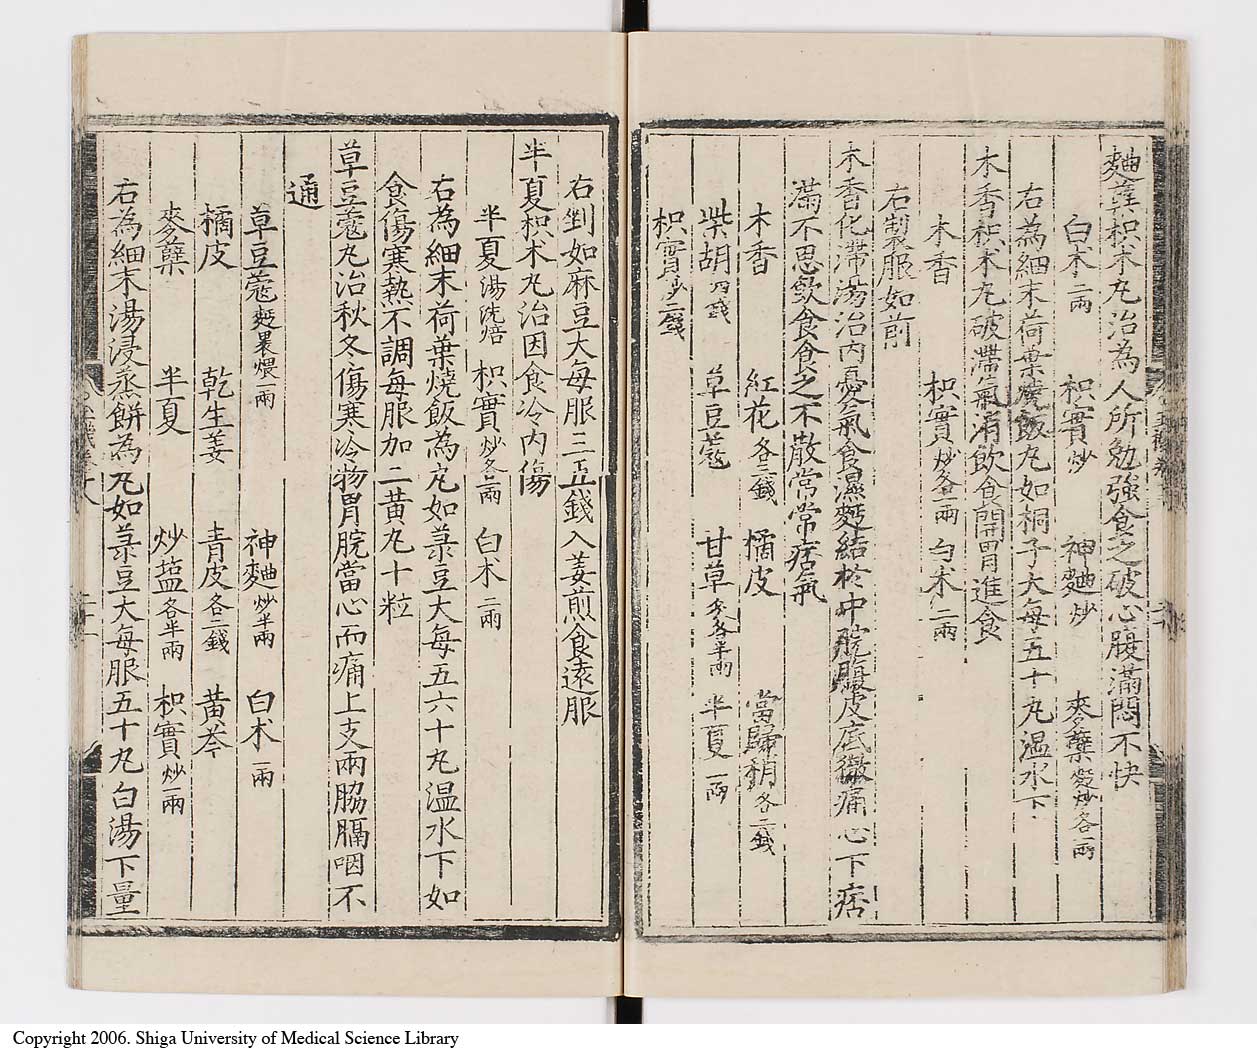 麯糵枳术丸治為人所勉強食之破心腹滿悶不快
白术二兩 枳實炒 神麯炒 麥糵麩炒各一兩
右為細末荷葉燒飯丸如桐子大每五十丸温水下
木香枳术丸破滯氣消飲食開胃進食
木香 枳實炒各一兩 白术二兩
右製服如前
木香化滯湯治内憂氣食濕麪結於中脘腹皮底微痛心下痞
滿不思飲食食之不散常常痞氣
木香 紅花各三錢 橘皮 當歸稍各二錢
柴胡四錢 草豆蔻 甘草炙各半兩 半夏一兩
枳實炒二錢
右剉如麻豆大每服三五錢入姜煎食遠服
半夏枳术丸治因食冷内傷
半夏湯洗焙 枳實炒各一兩 白术二兩
右為細末荷葉燒飯為丸如菉豆大每五六十丸温水下如
食傷寒熱不調每服加二黄丸十粒
草豆蔻丸治秋冬傷寒冷物胃脘當心而痛上支兩脇膈咽不
通
草豆蔻麪裹煨二兩 神麯炒半兩 白术一兩
橘皮 乾生姜 青皮各二錢 黄芩
麥糵 半夏 炒塩各半兩 枳實炒一兩
右為細末湯浸蒸餅為丸如菉豆大每服五十丸白湯下量
Copyright 2006. Shiga University of Medical Science Library